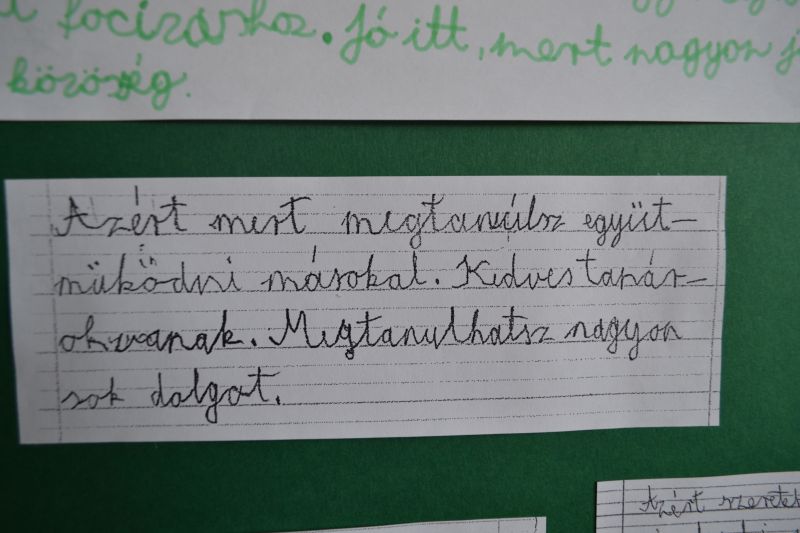 focizáshoz. Jó itt, mert nagyon j
közözség.
Azért mert megtanúlsz együt-
müködni másokal. Kedves tanár-
okvanak. Megtanulhatsz nagyon
sok dalgot.
Azért szeretek